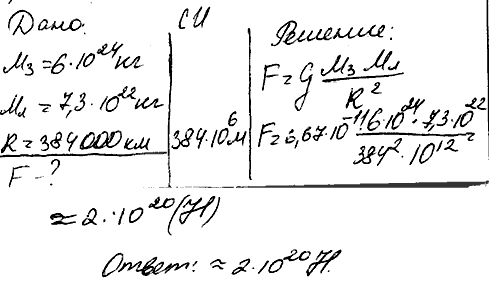 Дано:
Mз = 6·10²⁴ кг
Mл = 7,3·10²² кг
R = 384000 км
F - ?
СИ
384·10⁶ м
Решение:
F = G Mз Mл / R²
F = 6,67·10⁻¹¹ 6·10²⁴ · 7,3·10²² / 384² · 10¹²
≈ 2·10²⁰ (Н)
Ответ: ≈ 2·10²⁰ Н.